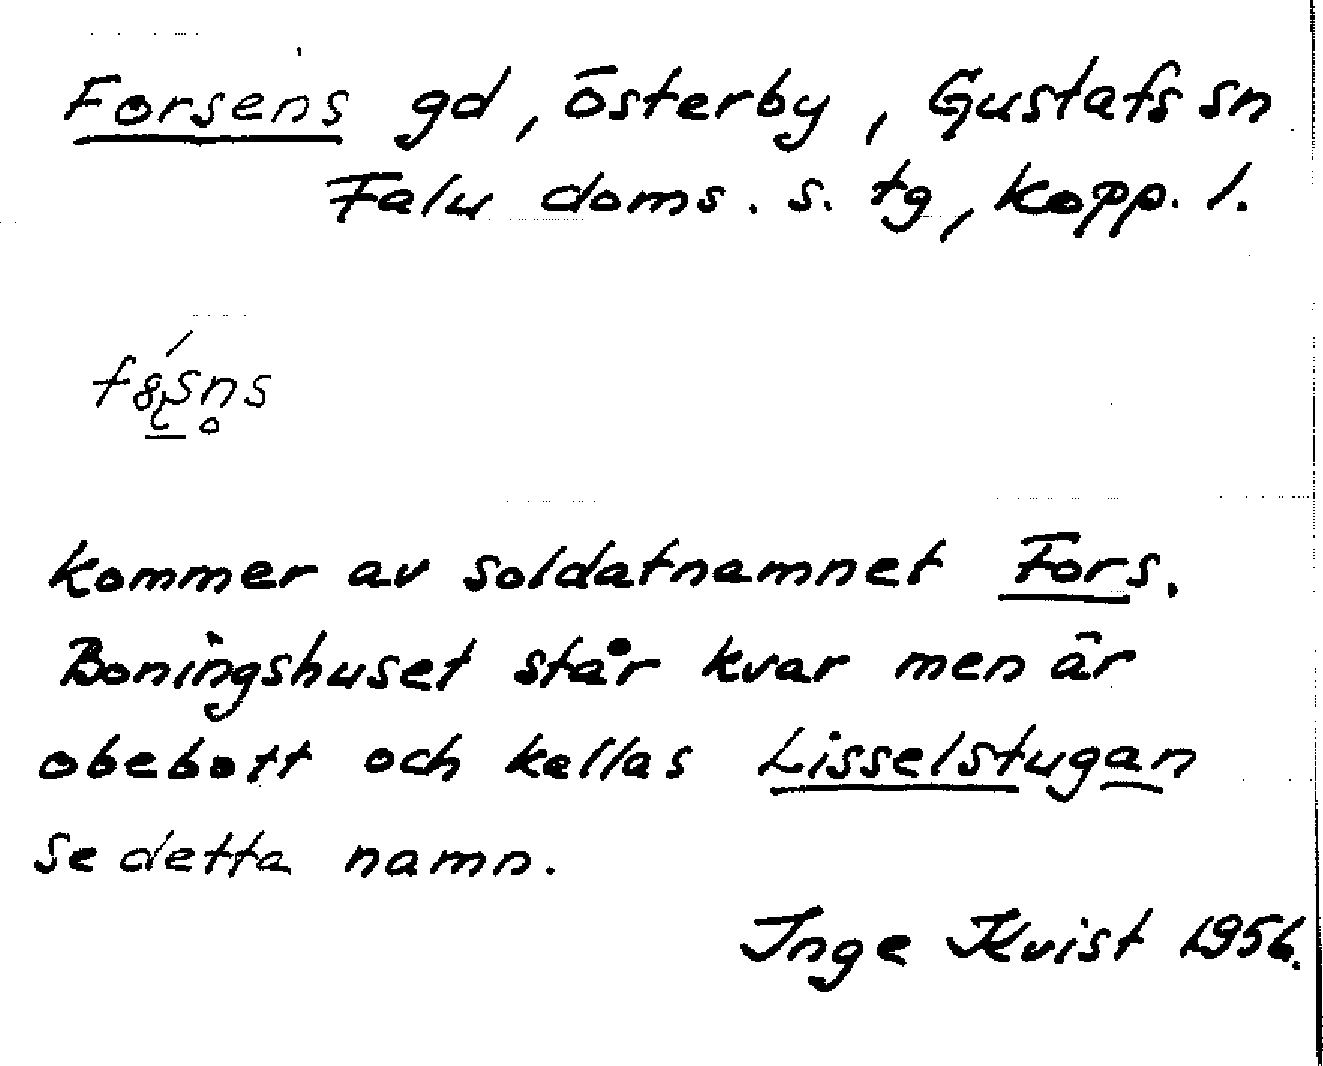 Forsens gd, Österby, Gustafs sn
Falu doms. s. tg, Kopp. l.
kommer av soldatnamnet Fors.
Boningshuset står kvar men är
obebott och kallas Lisselstugan
se detta namn.
Inge Kvist 1956.